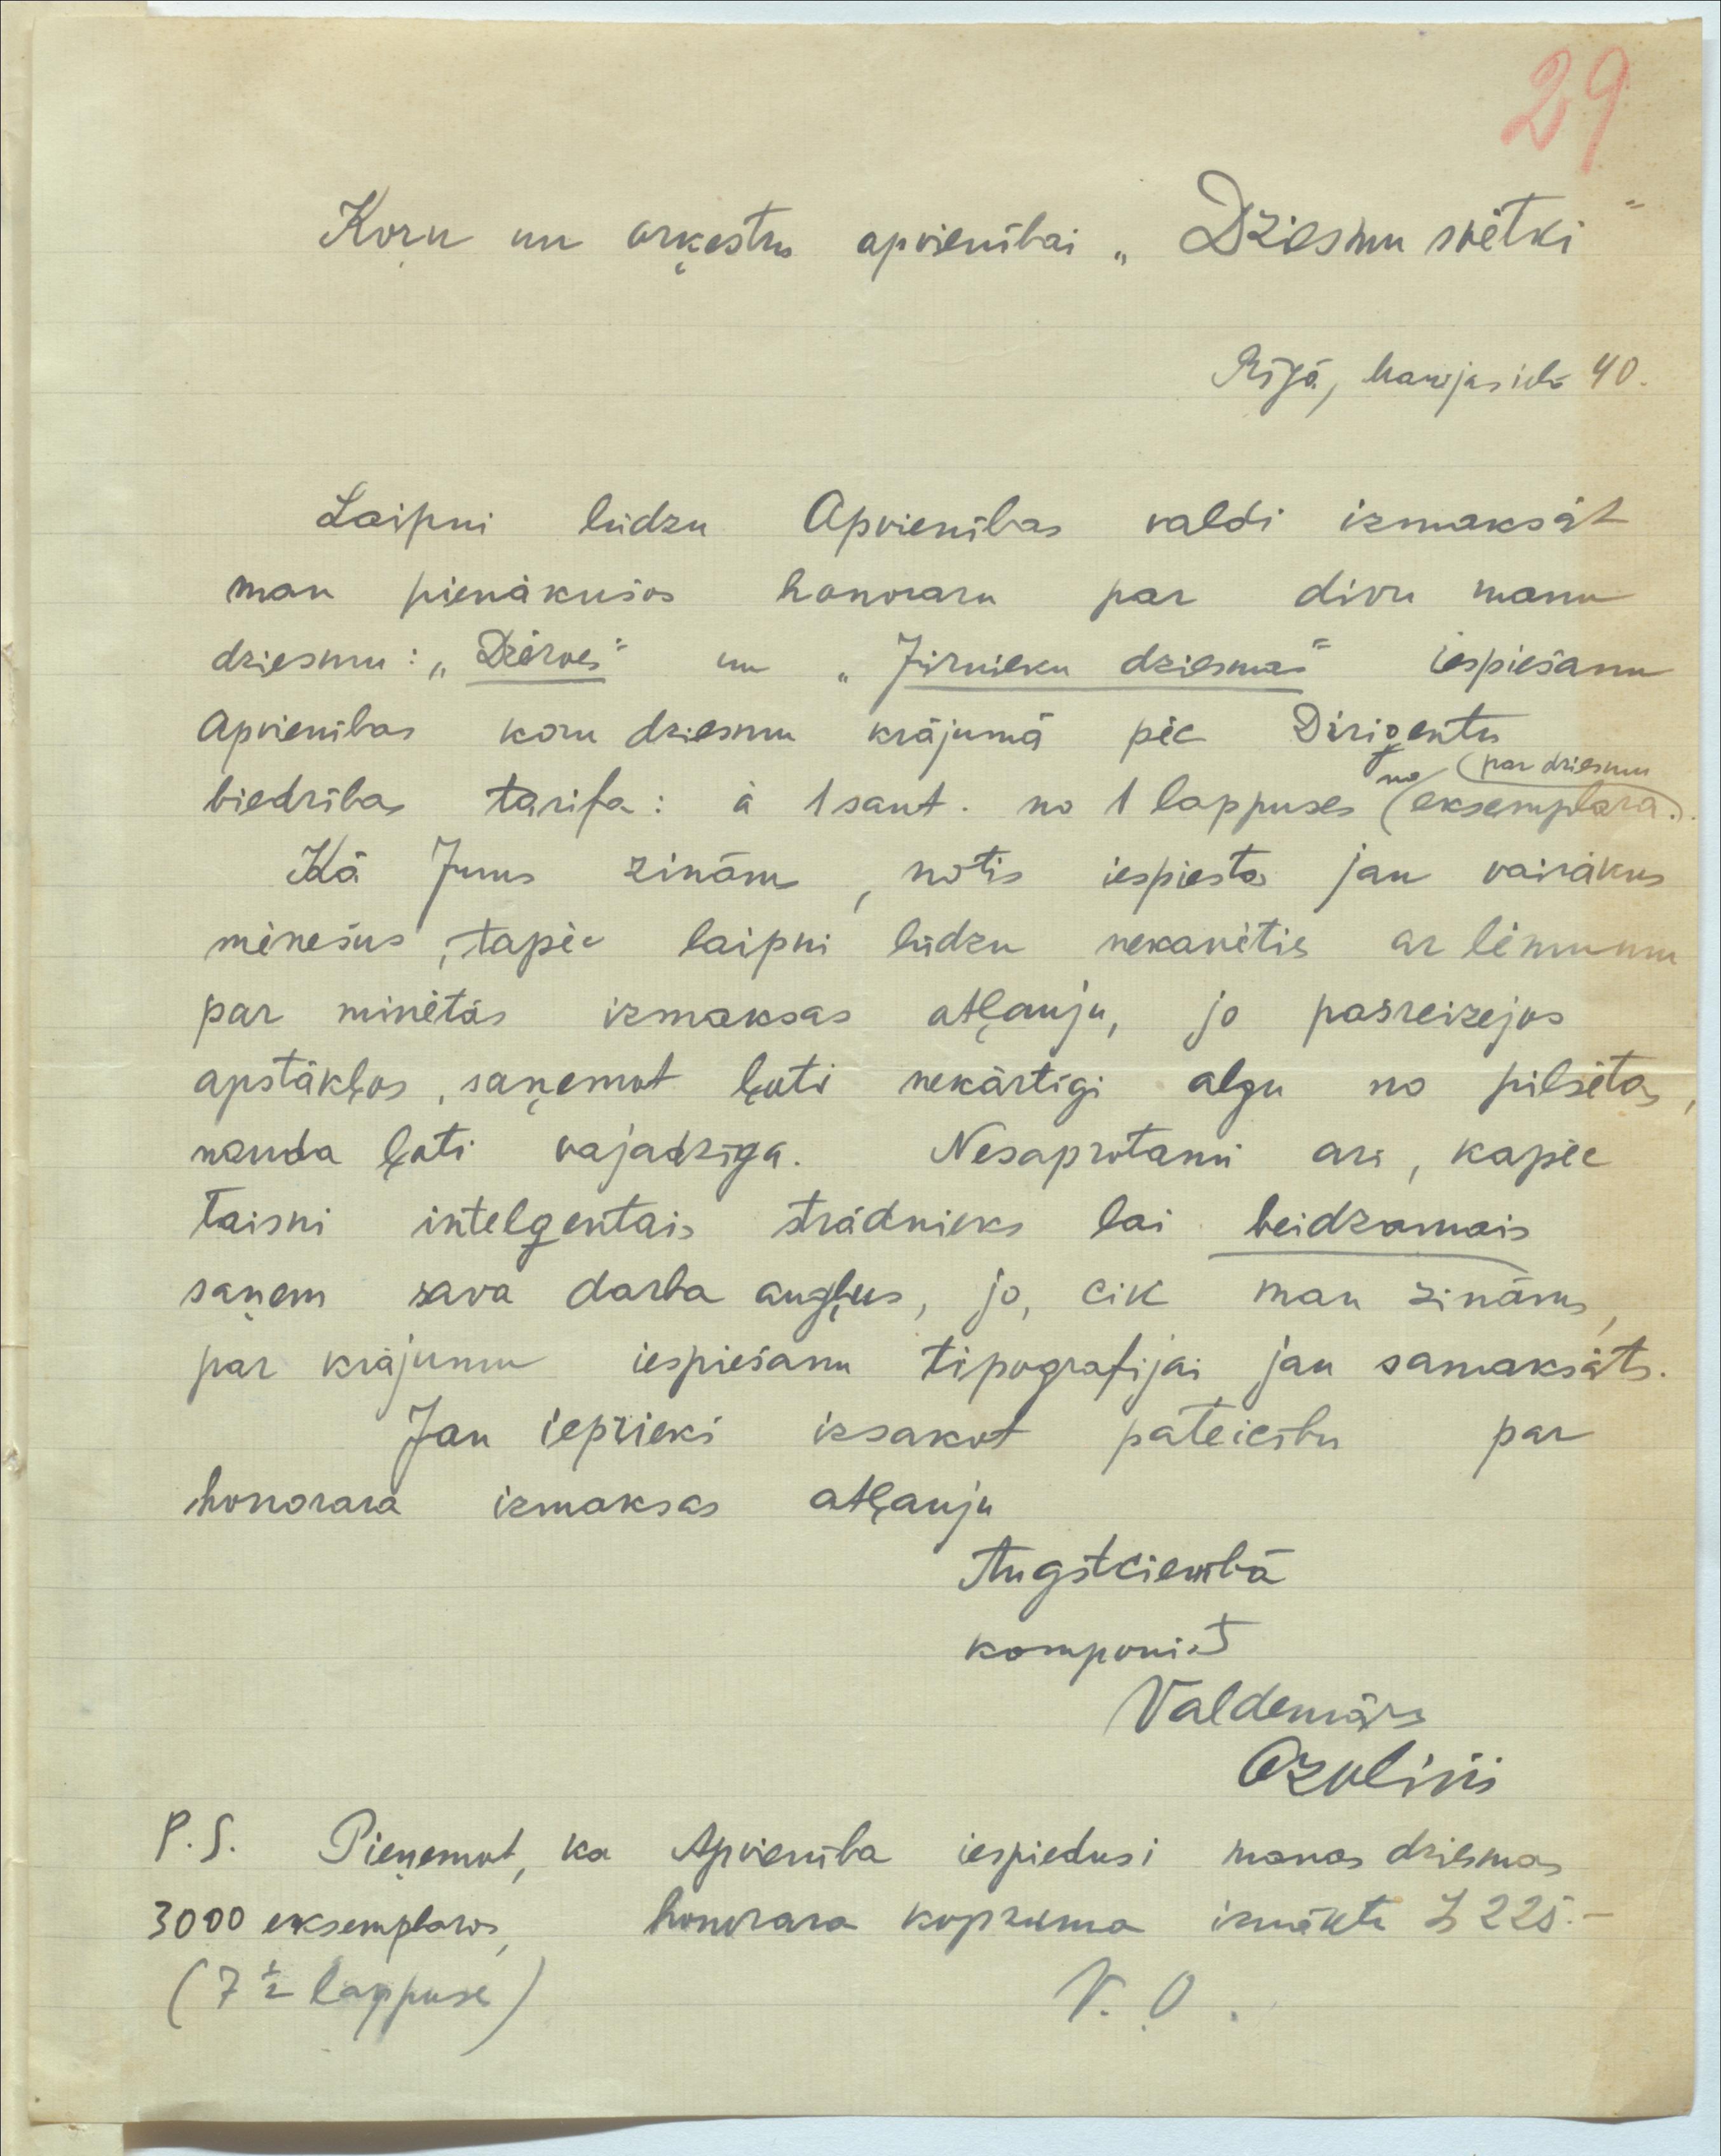 29
Koŗu un orķestru apvienībai „Dziesmu svētki"
Rīgā, Marijas ielā 40.
Laipni lūdzu Apvienības valdi izmaksāt
man pienākušos honoraru par divu manu
dziesmu: „Dzērves" un „Jūrnieku dziesmas" iespiešanu
Apvienības koru dziesmu krājumā pēc Diriģentu
biedrības tarifa: à 1 sant. no 1 lappuses no (eksemplara.) (par dziesmu
Kā Jums zināms, notis iespiestas jau vairākus
mēnešus, tapēc laipni lūdzu nekavēties ar lēmumu
par minētās izmaksas atļauju, jo pašreizejos
apstākļos, saņemot ļoti nekārtīgi algu no pilsētas,
nauda ļoti vajadzīga. Nesaprotami ari, kapēc
taisni intelģentais strādnieks lai beidzamais
saņem sava darba augļus, jo, cik man zināms,
par krājumu iespiešanu tipografijai jau samaksāts.
Jau iepriekš izsakot pateicību par
honorara izmaksas atļauju
Augstcienībā
komponist
Valdemārs
Ozoliņš
P.S. Pieņemot, ka Apvienība iespiedusi manas dziesmas
3000 eksemplaros, honorara kopsuma iznāktu Ls 225.-
(7 1/2 lappuse)
V. O.